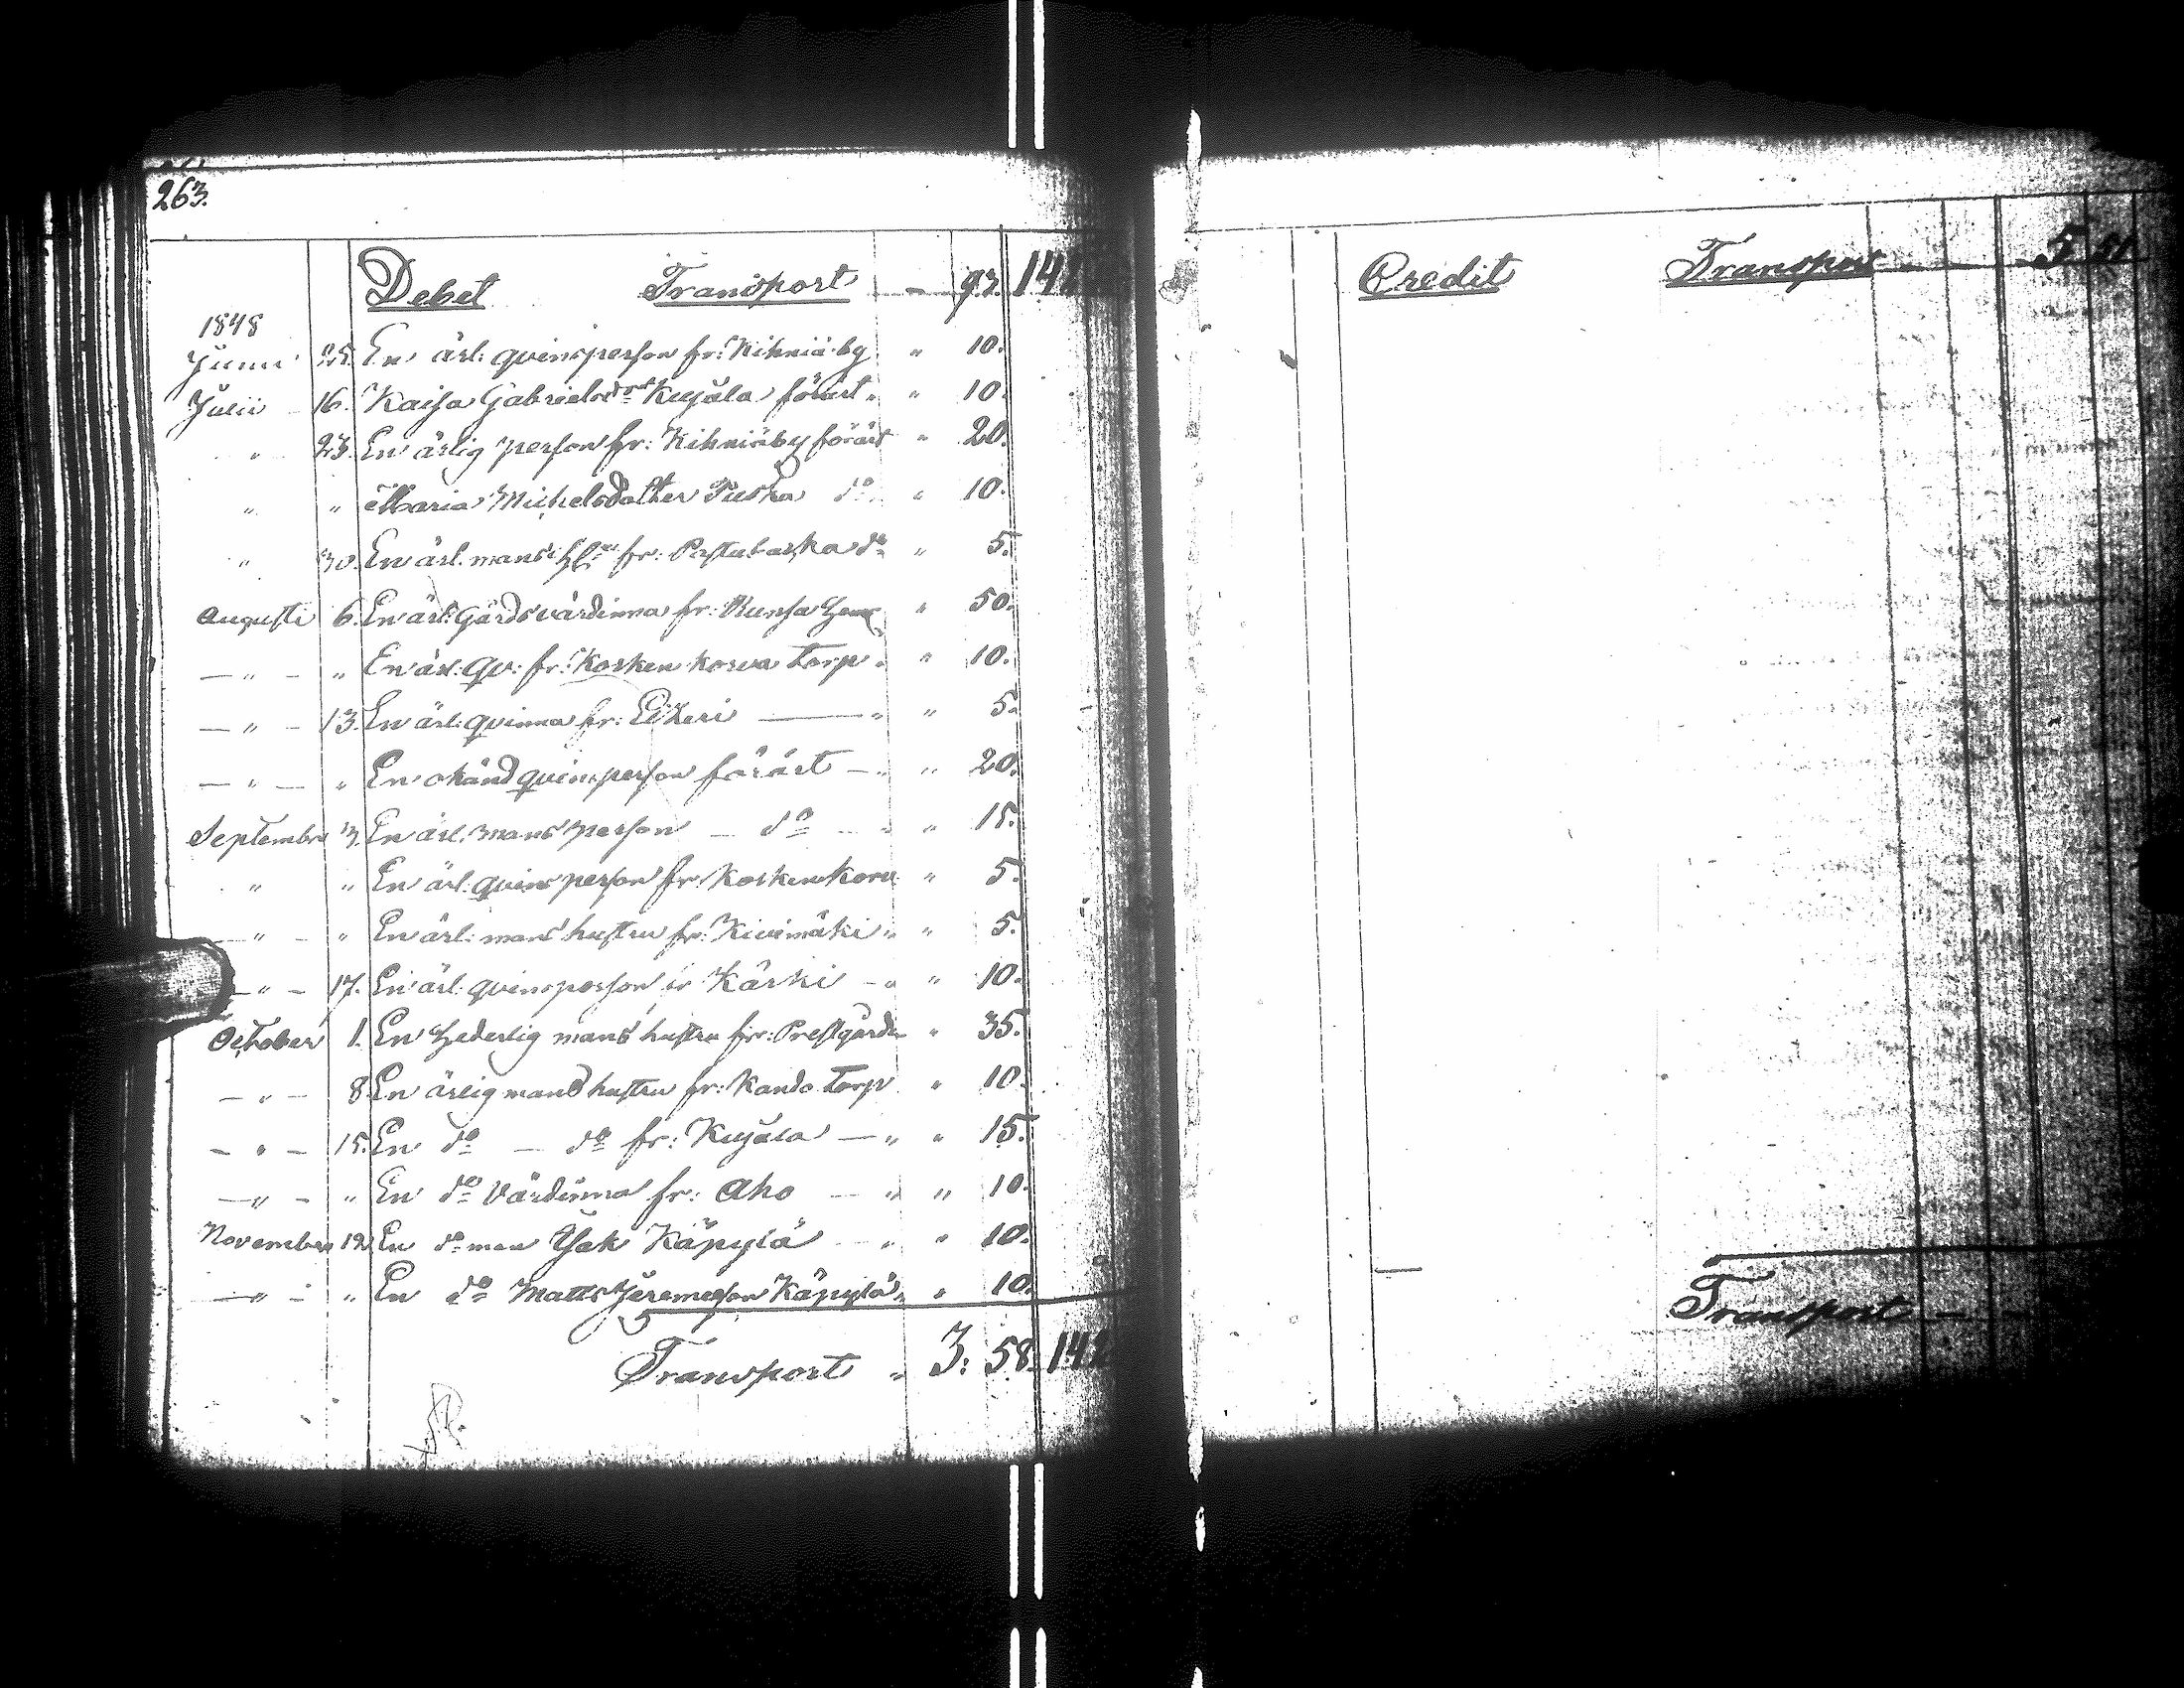 263.
Debet Transport — 93. 141
1848
Junii 25. En ärl: qvinsperson fr: Kihniä by " 10.
Julii – 16. Kaisa Gabrielsdr Kujala förärt " " 10.
" 23. En ärlig person fr: Kihniäby förärt " 20.
" " Maria Michelsdotter Puska do " 10.
" 30. En ärl. mans fr: do " 5.
Augusti 6. En ärl: Gårdsvärdinna fr: " 50.
— " — " En ärl: qv: fr: Koskenkorva Torp " " 10.
— " — 13. En ärl: qvinna fr: Etzeri — " " 5.
— " — " En okänd qvinsperson förärt — " " 20.
Septembr 3. En ärl. mans person — do — " " 15.
" " En ärl: qvins person fr: Koskenkorv " 5.
— " — " En ärl: mans hustru fr: Kivimäki " " 5.
— " — 17. En ärl: qvinsperson fr Kärki — " " 10.
October 1. En hederlig mans hustru fr: Prestgården " 35.
— " — 8. En ärlig mans hustru fr: Kando Torp " 10.
— " — 15. En do — do fr: Kujala — " " 15.
— " — " En do Värdinna fr: Aho — " " 10.
November 12. En do man Isak Käpylä — " " 10.
— " — " En do Matts Jeremiæson Käpylä " " 10.
Transport " 3: 58. 141
Credit Transport 5 51
Transport — —